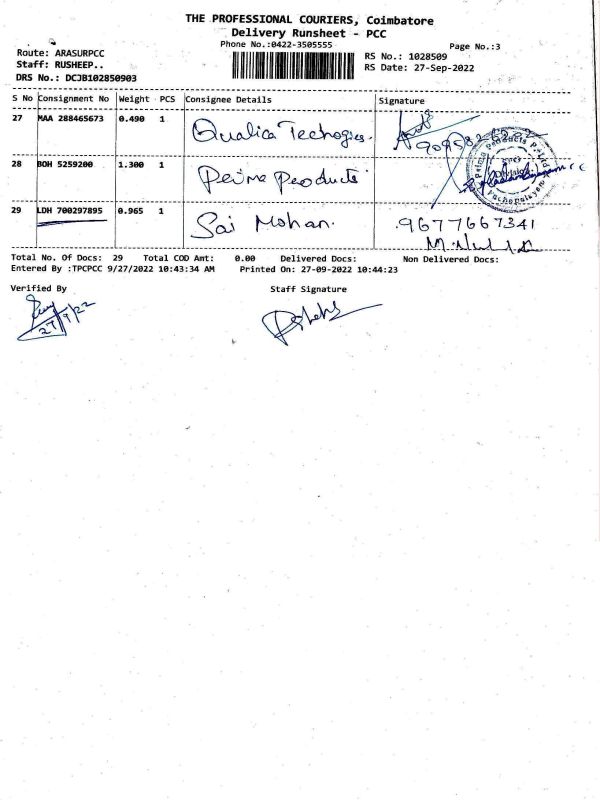 THE PROFESSIONAL COURIERS, Coimbatore
Delivery Runsheet - PCC
Phone No.:0422-3505555
Page No.:3
Route: ARASURPCC
RS No.: 1028509
Staff: RUSHEEP..
RS Date: 27-Sep-2022
DRS No.: DCJB102850903
S No Consignment No Weight PCS Consignee Details Signature
27 MAA 288465673 0.490 1 Qualica Techogies.
28 BOH 5259200 1.300 1 Prime Products
Prime Products Pvt Ltd
Pachapalayam
29 LDH 700297895 0.965 1 Sai Mohan. 9677667341
Total No. Of Docs: 29 Total COD Amt: 0.00 Delivered Docs: Non Delivered Docs:
Entered By :TPCPCC 9/27/2022 10:43:34 AM Printed On: 27-09-2022 10:44:23
Verified By Staff Signature
27/9/22